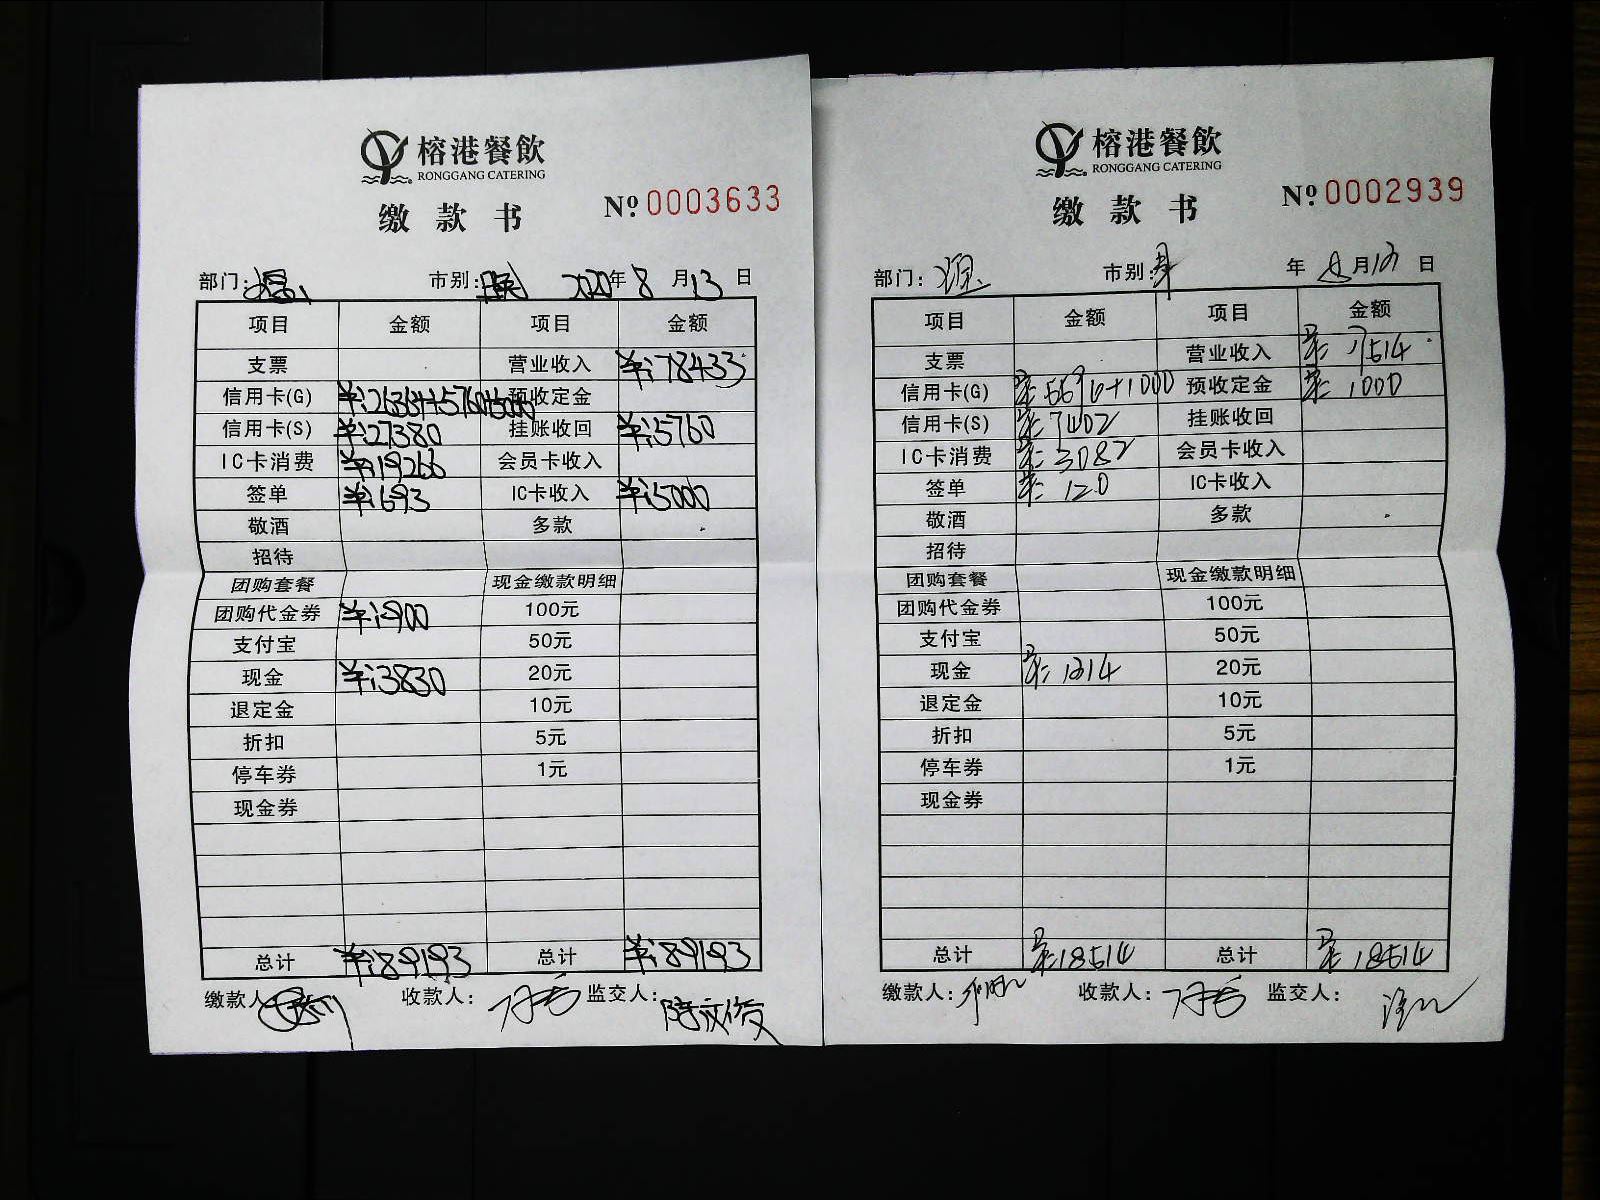 榕港餐飲
RONGGANG CATERING
缴款书 №0003633
部门: 市别: 2020年8月13日
项目 金额 项目 金额
支票 营业收入 ¥:78433
信用卡(G) ¥:26364+5760+5000 预收定金
信用卡(S) ¥:27380 挂账收回 ¥:5760
IC卡消费 ¥:19266 会员卡收入
签单 ¥:693 IC卡收入 ¥:5000
敬酒 多款
招待
团购套餐 现金缴款明细
团购代金券 ¥:900 100元
支付宝 50元
现金 ¥:3830 20元
退定金 10元
折扣 5元
停车券 1元
现金券
总计 ¥:89193 总计 ¥:89193
缴款人: 收款人: 监交人:
榕港餐飲
RONGGANG CATERING
缴款书 №0002939
部门: 市别: 年8月13日
项目 金额 项目 金额
支票 营业收入 ¥:17514
信用卡(G) ¥:5596+1000 预收定金 ¥:1000
信用卡(S) ¥:7402 挂账收回
IC卡消费 ¥:3082 会员卡收入
签单 ¥:120 IC卡收入
敬酒 多款
招待
团购套餐 现金缴款明细
团购代金券 100元
支付宝 50元
现金 ¥:1314 20元
退定金 10元
折扣 5元
停车券 1元
现金券
总计 ¥:18514 总计 ¥:18514
缴款人: 收款人: 监交人: